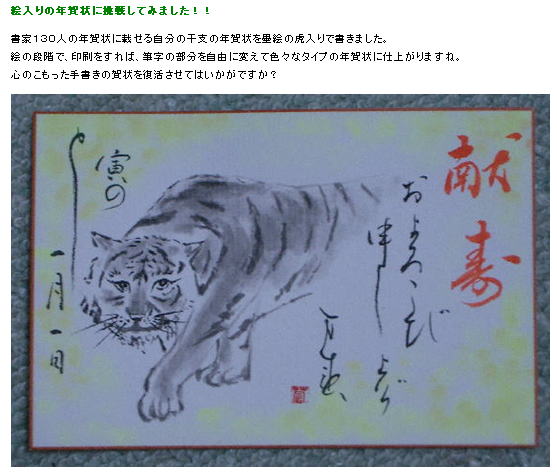 絵入りの年賀状に挑戦してみました！！
書家１３０人の年賀状に載せる自分の干支の年賀状を墨絵の虎入りで書きました。
絵の段階で、印刷をすれば、筆字の部分を自由に変えて色々なタイプの年賀状に仕上がりますね。
心のこもった手書きの賀状を復活させてはいかがですか？
献寿
およろこび
申し
寅の
とし
一月一日